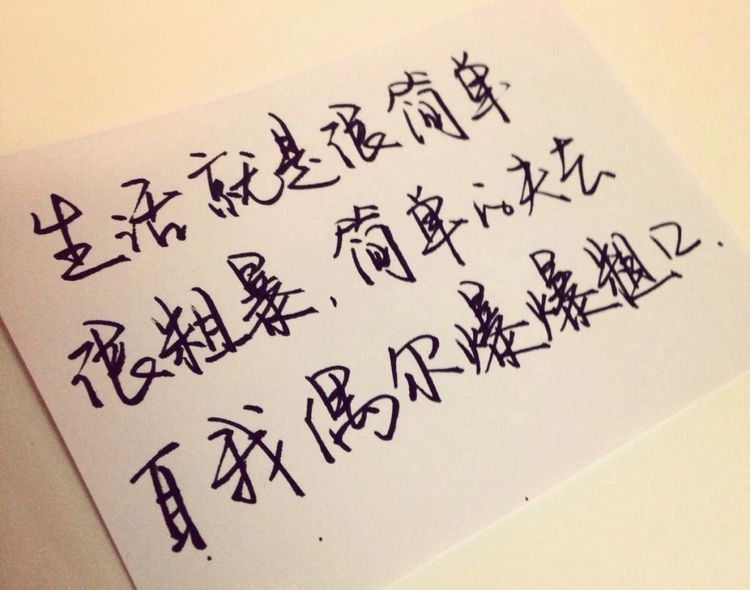 生活就是很简单
很粗暴、简单的失去
自我偶尔爆爆粗口.